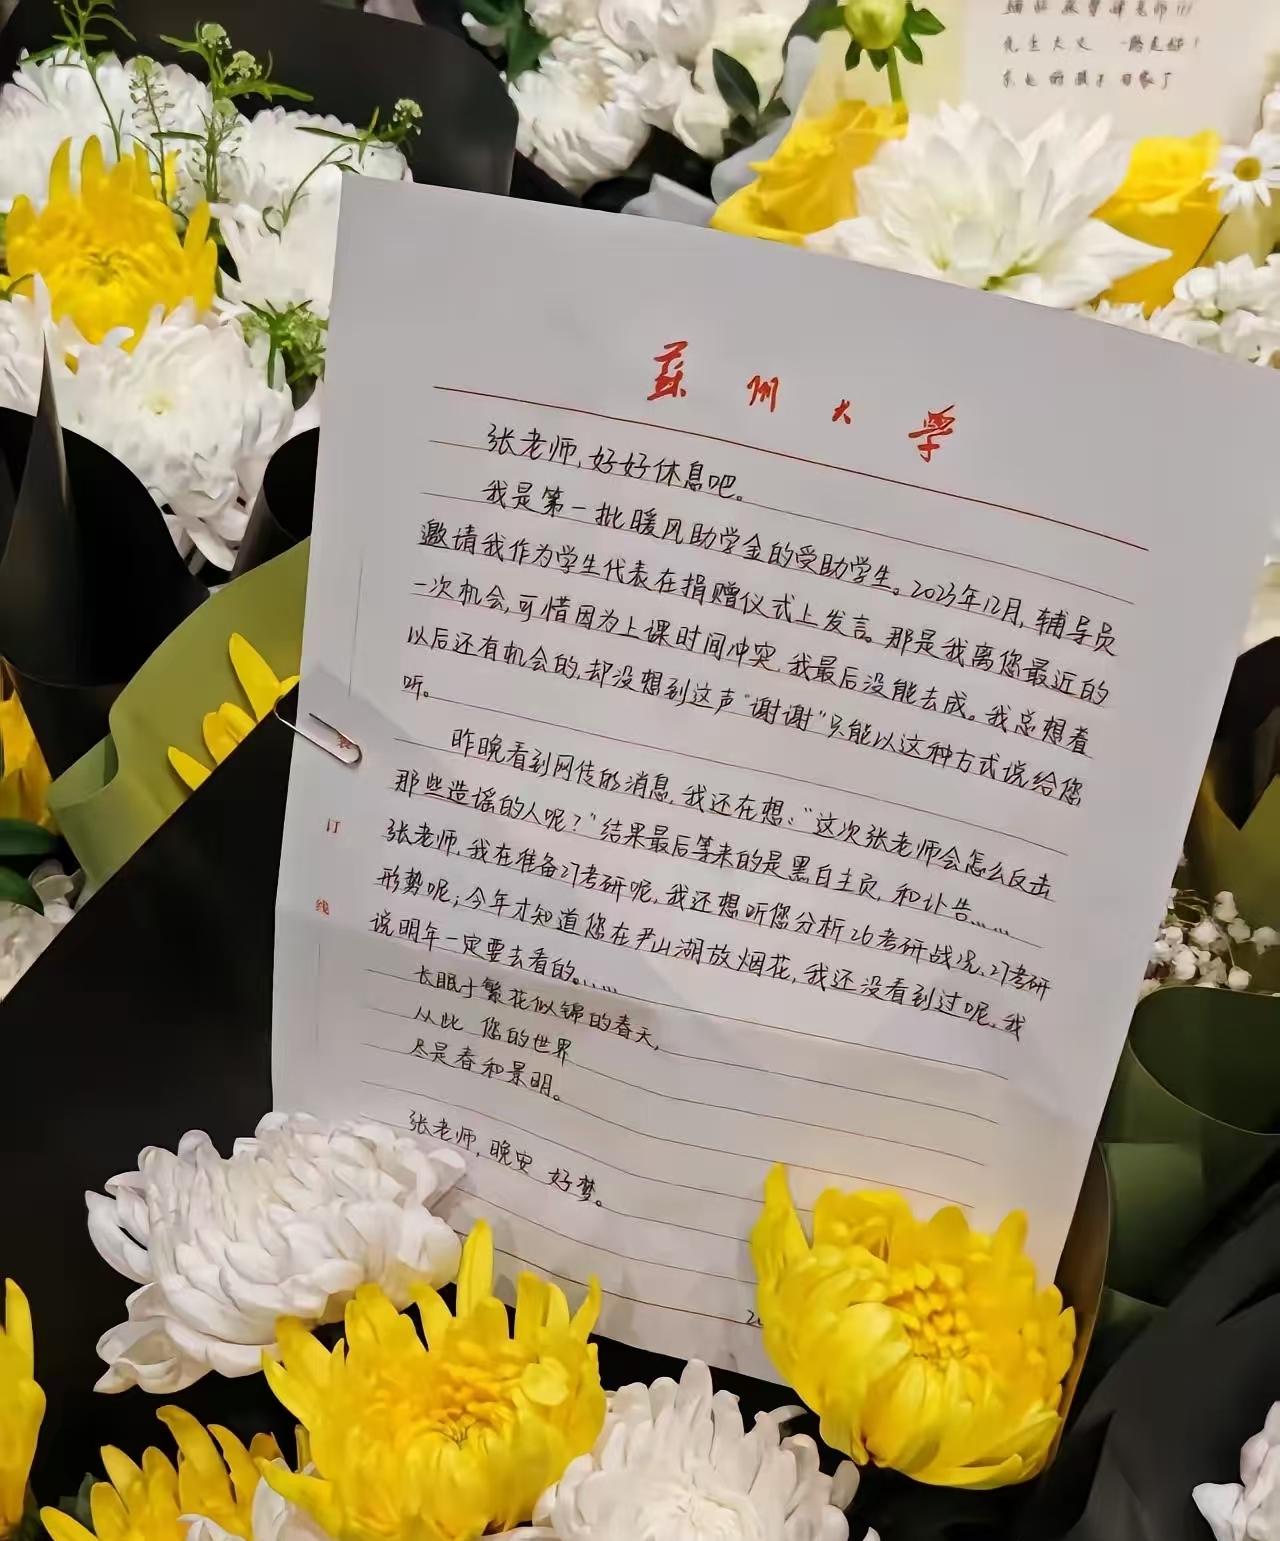 一路走好！
蘇州大学
张老师，好好休息吧。
我是第一批暖风助学金的受助学生。2023年12月，辅导员
邀请我作为学生代表在捐赠仪式上发言。那是我离您最近的
一次机会，可惜因为上课时间冲突，我最后没能去成。我总想着
以后还有机会的，却没想到这声“谢谢”只能以这种方式说给您
听。
昨晚看到网传的消息，我还在想：“这次张老师会怎么反击
那些造谣的人呢？”结果最后等来的是黑白主页，和讣告……
张老师，我在准备27考研呢，我还想听您分析26考研战况、27考研
形势呢；今年才知道您在尹山湖放烟花，我还没看到过呢，我
说明年一定要去看的……
长眠于繁花似锦的春天，
从此 您的世界
尽是春和景明。
张老师，晚安 好梦。
装
订
线